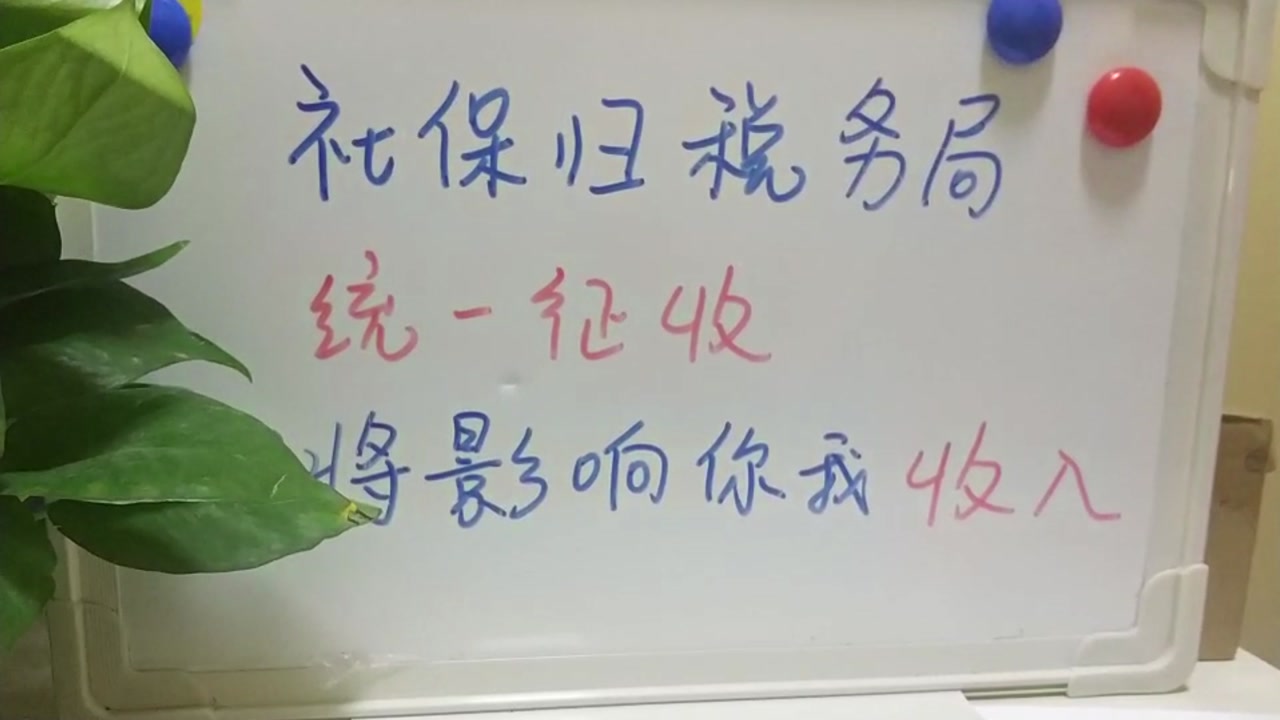 社保归税务局
统一征收
将影响你我收入